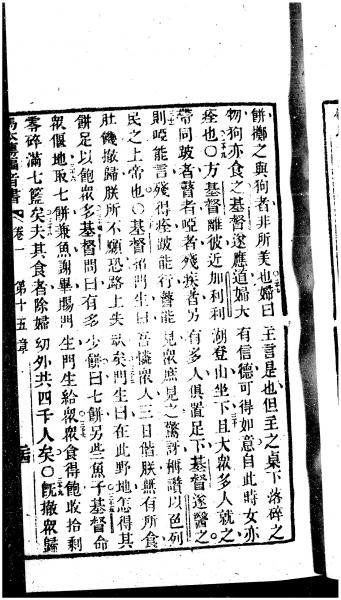 餅擲之與狗者非所美也婦曰主言是也但主之桌下落碎之
物狗亦食之基督遂應道婦大有信德可得如意自此時女亦
痊也○方基督離彼近加利利湖登山坐下且大眾多人就之
帶同跛者瞽者啞者殘疾者另有多人俱置足下基督遂醫之
則啞能言殘得痊跛能行瞽能見眾庶見之驚訝稱讚以色列
民之上帝也○基督招門生曰吾憐眾人三日偕朕無有所食
肚饑撤歸朕所不願恐路上失缺矣門生曰在此野地怎得其
餅足以飽眾多基督問曰有多少餅曰七餅另些魚子基督命
眾偃地取七餅兼魚謝畢賜門生門生給眾眾食得飽收拾剩
零碎滿七籃矣夫其食者除婦幼外共四千人矣○既撤眾歸
音書 卷一 第十五章